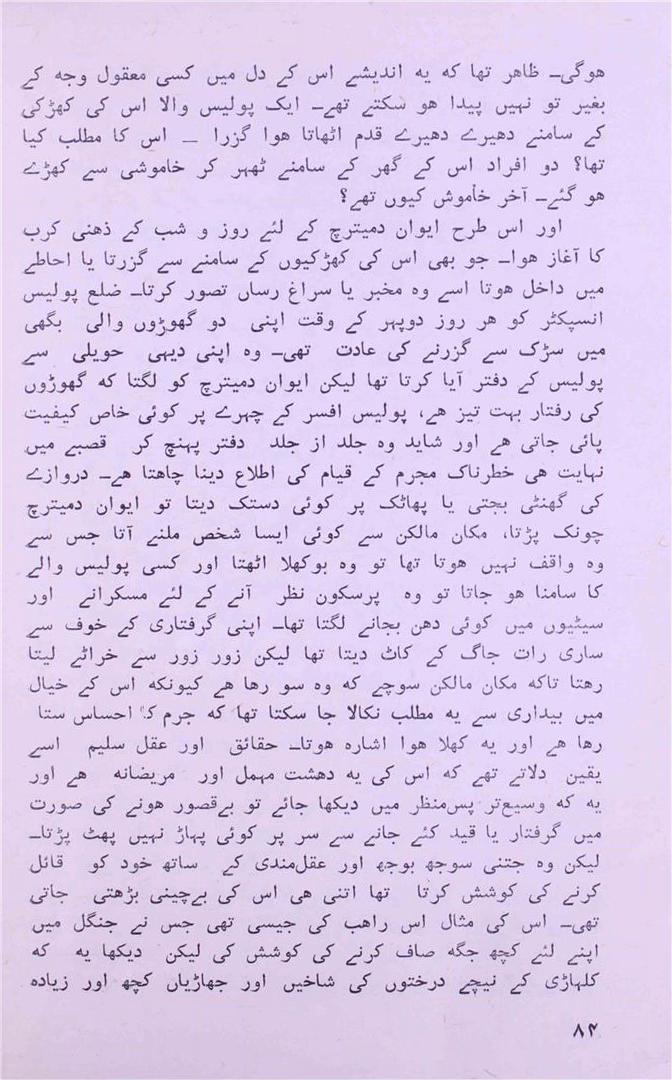 ھوگی۔ ظاھر تھا کہ یہ اندیشے اس کے دل میں کسی معقول وجہ کے
بغیر تو نہیں پیدا ھو سکتے تھے۔ ایک پولیس والا اس کی کھڑکی
کے سامنے دھیرے دھیرے قدم اٹھاتا ھوا گزرا ــ اس کا مطلب کیا
تھا؟ دو افراد اس کے گھر کے سامنے ٹھہر کر خاموشی سے کھڑے
ھو گئے۔ آخر خاموش کیوں تھے؟
اور اس طرح ایوان دمیترچ کے لئے روز و شب کے ذھنی کرب
کا آغاز ھوا۔ جو بھی اس کی کھڑکیوں کے سامنے سے گزرتا یا احاطے
میں داخل ھوتا اسے وہ مخبر یا سراغ رساں تصور کرتا۔ ضلع پولیس
انسپکٹر کو ھر روز دوپہر کے وقت اپنی دو گھوڑوں والی بگھی
میں سڑک سے گزرنے کی عادت تھی۔ وہ اپنی دیہی حویلی سے
پولیس کے دفتر آیا کرتا تھا لیکن ایوان دمیترچ کو لگتا کہ گھوڑوں
کی رفتار بہت تیز ھے، پولیس افسر کے چہرے پر کوئی خاص کیفیت
پائی جاتی ھے اور شاید وہ جلد از جلد دفتر پہنچ کر قصبے میں
نہایت ھی خطرناک مجرم کے قیام کی اطلاع دینا چاھتا ھے۔ دروازے
کی گھنٹی بجتی یا پھاٹک پر کوئی دستک دیتا تو ایوان دمیترچ
چونک پڑتا، مکان مالکن سے کوئی ایسا شخص ملنے آتا جس سے
وہ واقف نہیں ھوتا تھا تو وہ بوکھلا اٹھتا اور کسی پولیس والے
کا سامنا ھو جاتا تو وہ پرسکون نظر آنے کے لئے مسکرانے اور
سیٹیوں میں کوئی دھن بجانے لگتا تھا۔ اپنی گرفتاری کے خوف سے
ساری رات جاگ کے کاٹ دیتا تھا لیکن زور زور سے خراٹے لیتا
رھتا تاکہ مکان مالکن سوچے کہ وہ سو رھا ھے کیونکہ اس کے خیال
میں بیداری سے یہ مطلب نکالا جا سکتا تھا کہ جرم کا احساس ستا
رھا ھے اور یہ کھلا ھوا اشارہ ھوتا۔ حقائق اور عقل سلیم اسے
یقین دلاتے تھے کہ اس کی یہ دھشت مہمل اور مریضانہ ھے اور
یہ کہ وسیع‌تر پس‌منظر میں دیکھا جائے تو بے‌قصور ھونے کی صورت
میں گرفتار یا قید کئے جانے سے سر پر کوئی پہاڑ نہیں پھٹ پڑتا۔
لیکن وہ جتنی سوجھ بوجھ اور عقل‌مندی کے ساتھ خود کو قائل
کرنے کی کوشش کرتا تھا اتنی ھی اس کی بے‌چینی بڑھتی جاتی
تھی۔ اس کی مثال اس راھب کی جیسی تھی جس نے جنگل میں
اپنے لئے کچھ جگہ صاف کرنے کی کوشش کی لیکن دیکھا یہ کہ
کلہاڑی کے نیچے درختوں کی شاخیں اور جھاڑیاں کچھ اور زیادہ
۸۴